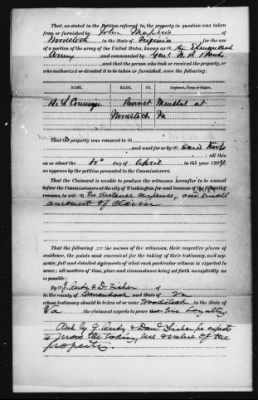 That, as stated in the Petition referred to, the property in question was taken
from or furnished by John Maphis of
Woodstock in the State of Virginia for the use
of a portion of the army of the United States, known as the Shenandoah
Army and commanded by Genl
and that the person who took or received the property, or
who authorized or directed it to be taken or furnished, were the following:
NAME. RANK. Regiment, Corps, or Station.
Provost Marshal at
Woodstock Va
That the property was removed to
and used for or by said troops
all this
on or about the 30th day of April in the year 186
as appears by the petition presented to the Commissioners.
That the Claimant is unable to produce the witnesses hereafter to be named
before the Commissioners at the City of Washington for and because of the following
reasons, to wit: the distance, expense, and small
amount of claim
That the following are the names of the witnesses, their respective places of
residence, the points most essential for the taking of their testimony, and ade-
quate, full and detailed statements of what each particular witness is expected to
prove; all matters of time, place and circumstance being set forth as explicitly as
is possible:
By D. Fisher of
in the county of Shenandoah and State of Va
whose testimony should be taken at or near Woodstock in the State of
Va the claimant expects to prove his Loyalty
And by he expects
to prove the taking, and value of the
property.